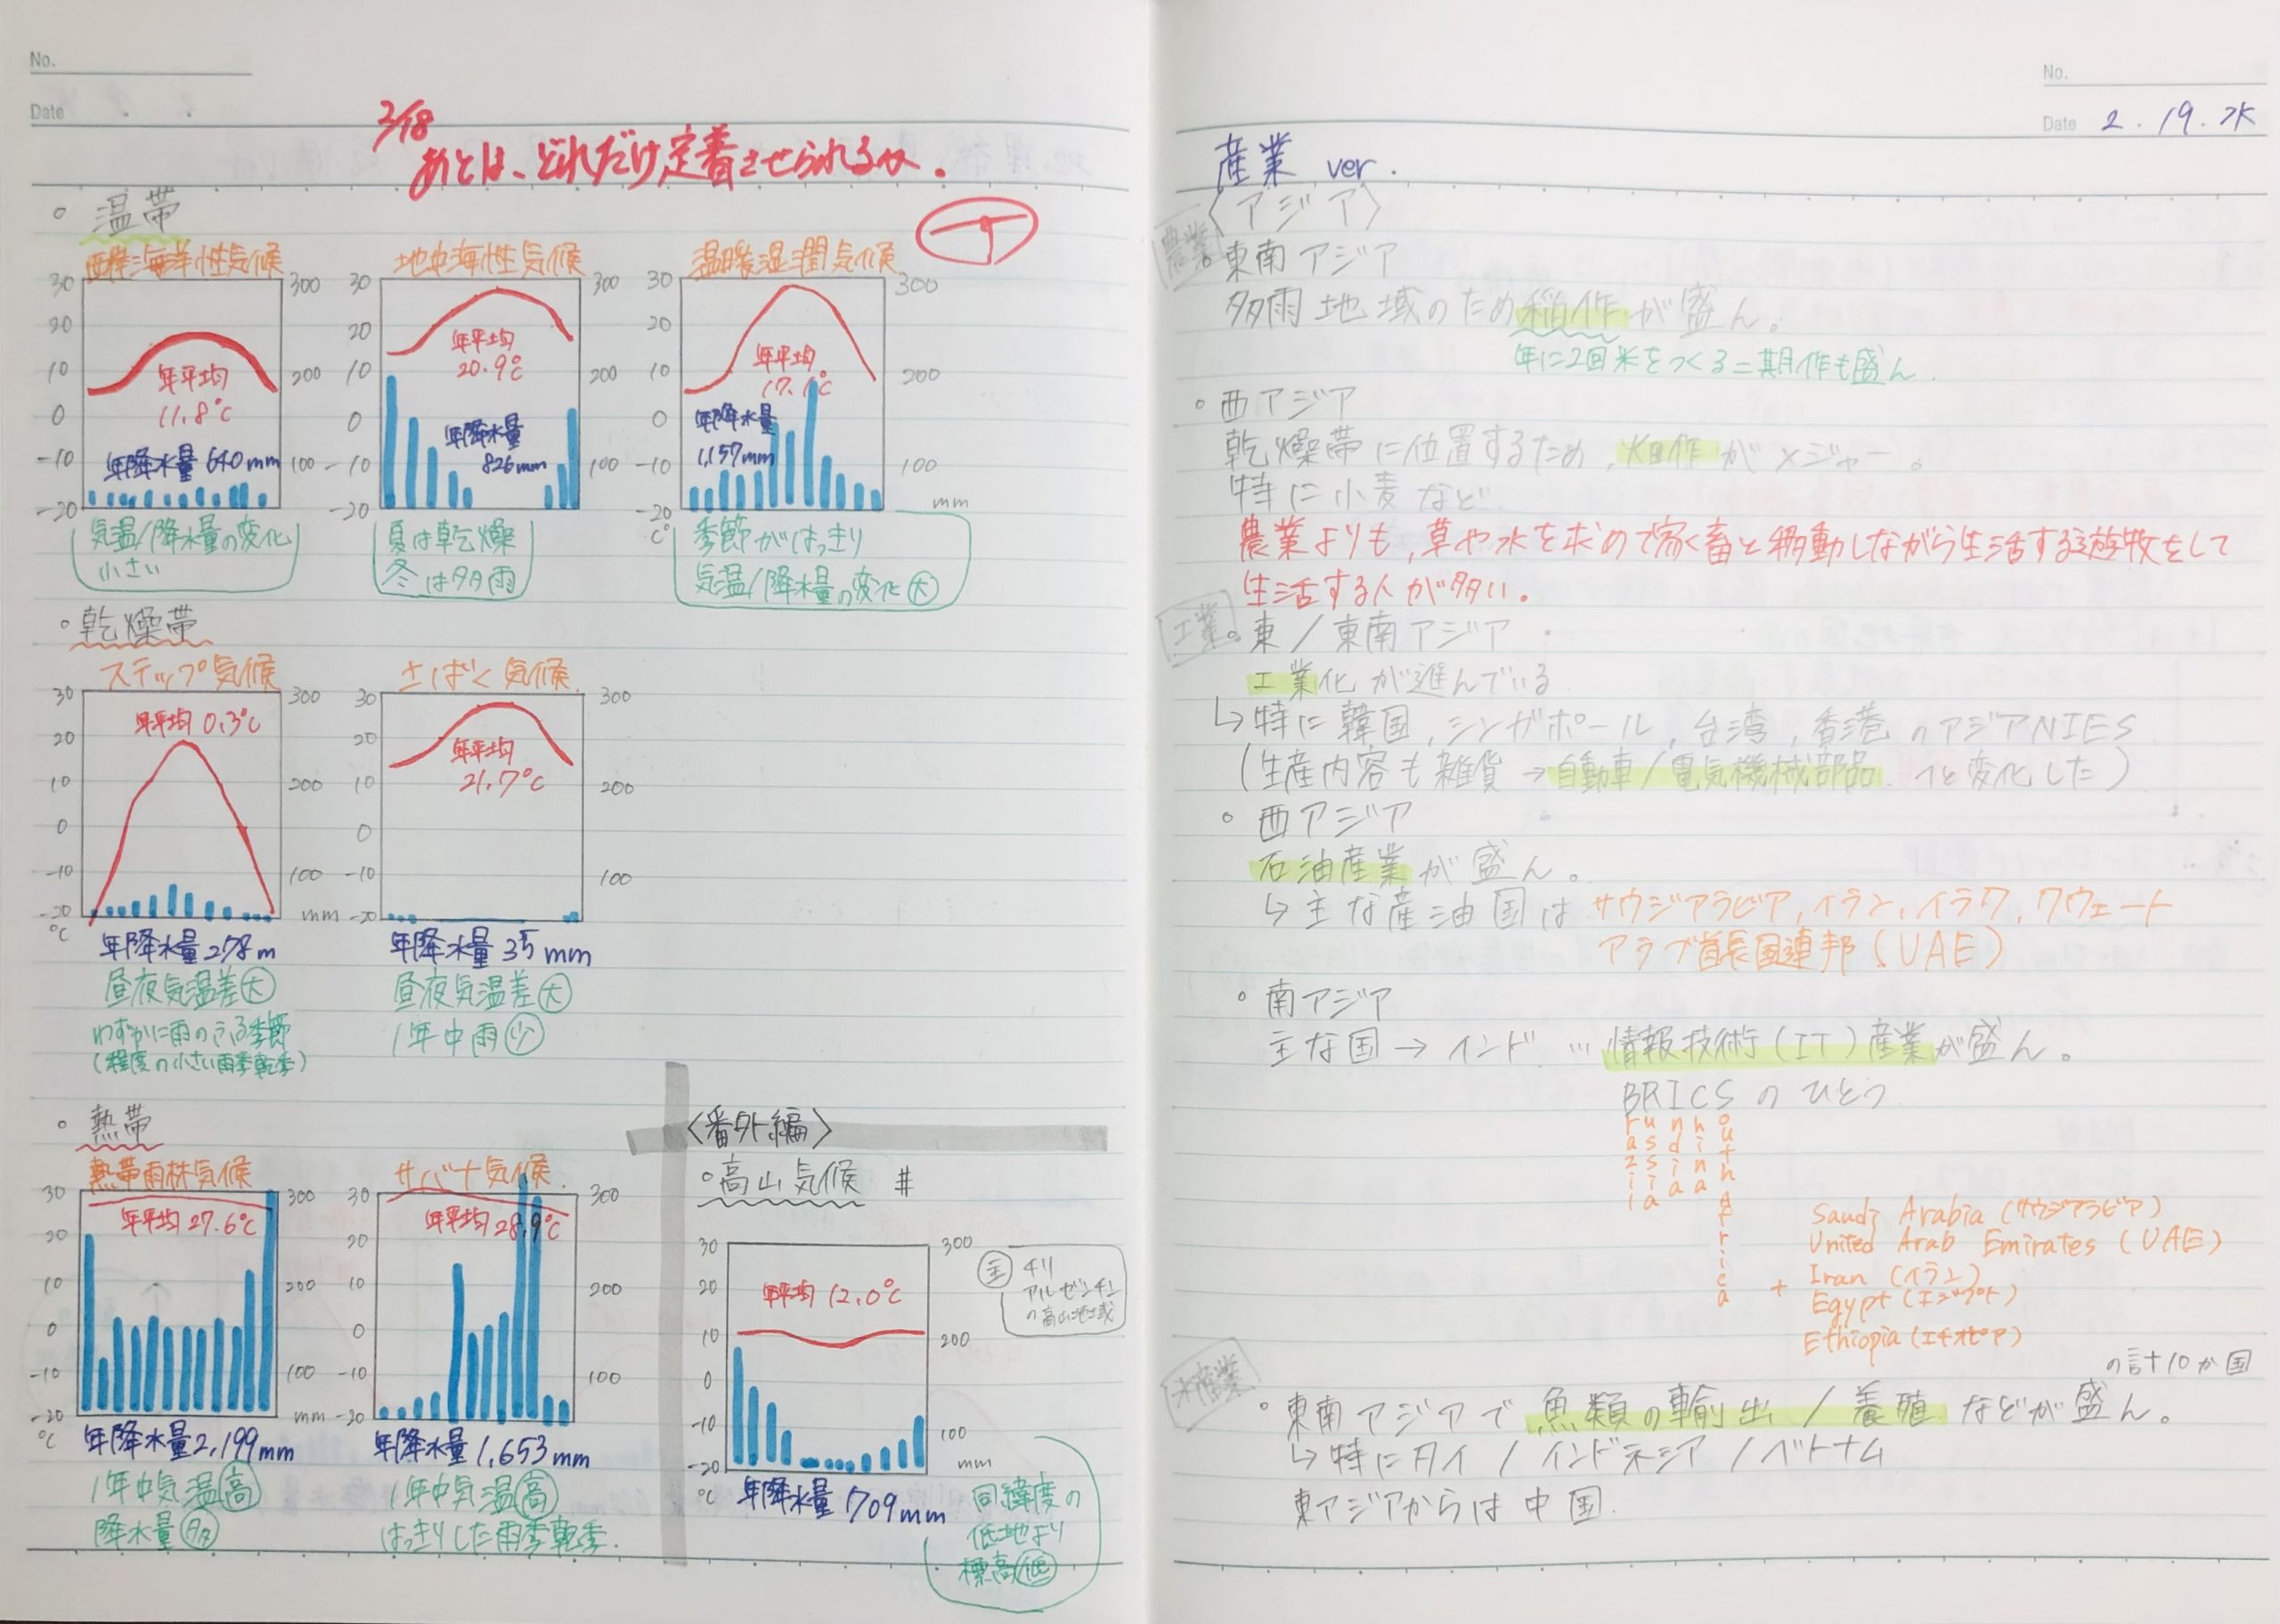 No.
Date
2/18
あとは、どれだけ定着させられるか。
。温帯
西岸海洋性気候
30
20
10
0
-10
-20
300
200
100
年平均
11.8℃
年降水量 640mm
気温/降水量の変化
小さい
地中海性気候
30
20
10
0
-10
-20
300
200
100
年平均
20.9℃
年降水量
826mm
夏は乾燥
冬は多雨
温暖湿潤気候
30
20
10
0
-10
-20
℃
300
200
100
mm
年平均
17.1℃
年降水量
1,157mm
季節がはっきり
気温/降水量の変化大
。乾燥帯
ステップ気候
30
20
10
0
-10
-20
℃
300
200
100
mm
年平均 0.3℃
年降水量278m
昼夜気温差大
わずかに雨のふる季節
(程度の小さい雨季乾季)
さばく気候
30
20
10
0
-10
-20
300
200
100
年平均
21.7℃
年降水量 35mm
昼夜気温差大
1年中雨少
。熱帯
熱帯雨林気候
30
20
10
0
-10
-20
℃
300
200
100
mm
年平均27.6℃
年降水量2,199mm
1年中気温高
降水量多
サバナ気候
30
20
10
0
-10
-20
300
200
100
年平均28.9℃
年降水量1,653mm
1年中気温高
はっきりした雨季乾季.
〈番外編〉
。高山気候 #
30
20
10
0
-10
-20
℃
300
200
100
mm
年平均 12.0℃
主 チリ
アルゼンチン
の高山地域
年降水量 709mm
同緯度の
低地より
標高低
No.
Date 2.19.水
産業 ver.
〈アジア〉
農業。東南アジア
多雨地域のため稲作が盛ん。
年に2回米をつくる二期作も盛ん.
。西アジア
乾燥帯に位置するため,畑作がメジャー。
特に小麦など
農業よりも,草や水を求めて家畜と移動しながら生活する遊牧をして
生活する人が多い。
工業。東/東南アジア
工業化が進んでいる
↳特に韓国,シンガポール,台湾,香港のアジアNIES
(生産内容も雑貨→自動車/電気機械部品 へと変化した)
。西アジア
石油産業が盛ん。
↳主な産油国は サウジアラビア,イラン,イラク,クウェート
アラブ首長国連邦(UAE)
。南アジア
主な国→インド…情報技術(IT)産業が盛ん。
BRICSのひとつ
razil
ussia
ndia
hina
outh africa
+
Saudi Arabia(サウジアラビア)
United Arab Emirates(UAE)
Iran(イラン)
Egypt(エジプト)
Ethiopia(エチオピア)
の計10か国
水産業
。東南アジアで魚類の輸出/養殖などが盛ん。
↳特にタイ/インドネシア/ベトナム
東アジアからは中国.